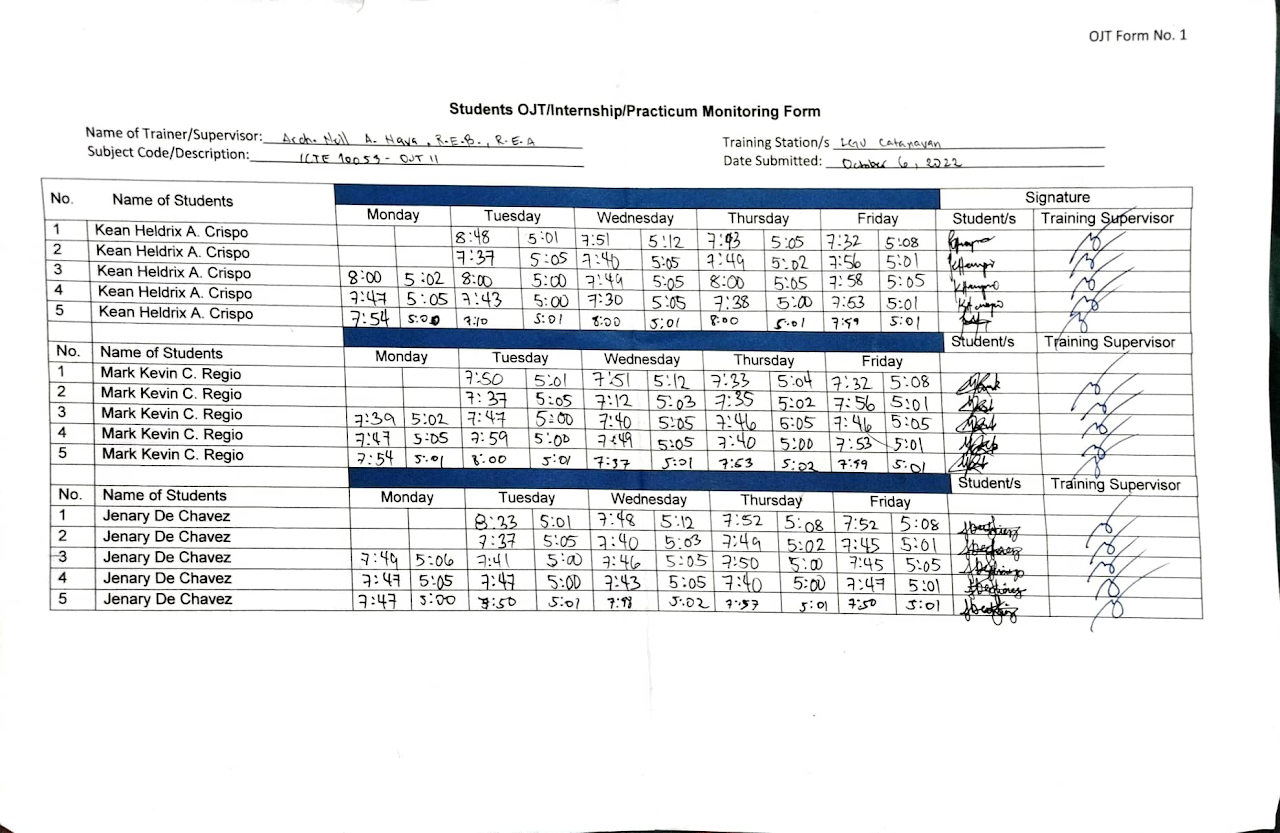 OJT Form No. 1
Students OJT/Internship/Practicum Monitoring Form
Name of Trainer/Supervisor: Arch. Nell A. Nava, R.E.B., R.E.A
Training Station/s LGU Catanauan
Subject Code/Description: ICTE 10053 - OJT II
Date Submitted: October 6, 2022
No. Name of Students Signature
Monday Tuesday Wednesday Thursday Friday Student/s Training Supervisor
1 Kean Heldrix A. Crispo 8:48 5:01 7:51 5:12 5:05 7:32 5:08
2 Kean Heldrix A. Crispo 7:37 5:05 7:40 5:05 7:49 5:02 7:56 5:01
3 Kean Heldrix A. Crispo 8:00 5:02 8:00 5:00 7:49 5:05 8:00 5:05 7:58 5:05
4 Kean Heldrix A. Crispo 7:47 5:05 7:43 5:00 7:30 5:05 7:38 5:00 7:53 5:01
5 Kean Heldrix A. Crispo 7:54 5:00 7:10 5:01 8:00 5:01 8:00 5:01 7:59 5:01
Student/s Training Supervisor
No. Name of Students Monday Tuesday Wednesday Thursday Friday
1 Mark Kevin C. Regio 7:50 5:01 7:51 5:12 7:33 5:04 7:32 5:08
2 Mark Kevin C. Regio 7:37 5:05 7:12 5:03 7:35 5:02 7:56 5:01
3 Mark Kevin C. Regio 7:39 5:02 7:47 5:00 7:40 5:05 7:46 5:05 7:46 5:05
4 Mark Kevin C. Regio 7:47 5:05 7:59 5:00 7:49 5:05 7:40 5:00 7:53 5:01
5 Mark Kevin C. Regio 7:54 5:01 8:00 5:01 7:37 5:01 7:53 5:02 7:59 5:01
Student/s Training Supervisor
No. Name of Students Monday Tuesday Wednesday Thursday Friday
1 Jenary De Chavez 8:33 5:01 7:48 5:12 7:52 5:08 7:52 5:08
2 Jenary De Chavez 7:37 5:05 7:40 5:03 7:49 5:02 7:45 5:01
3 Jenary De Chavez 7:49 5:06 7:41 5:00 7:46 5:05 7:50 5:00 7:45 5:05
4 Jenary De Chavez 7:47 5:05 7:47 5:00 7:43 5:05 7:40 5:00 7:47 5:01
5 Jenary De Chavez 7:47 5:00 7:50 5:01 5:02 7:57 5:01 7:50 5:01